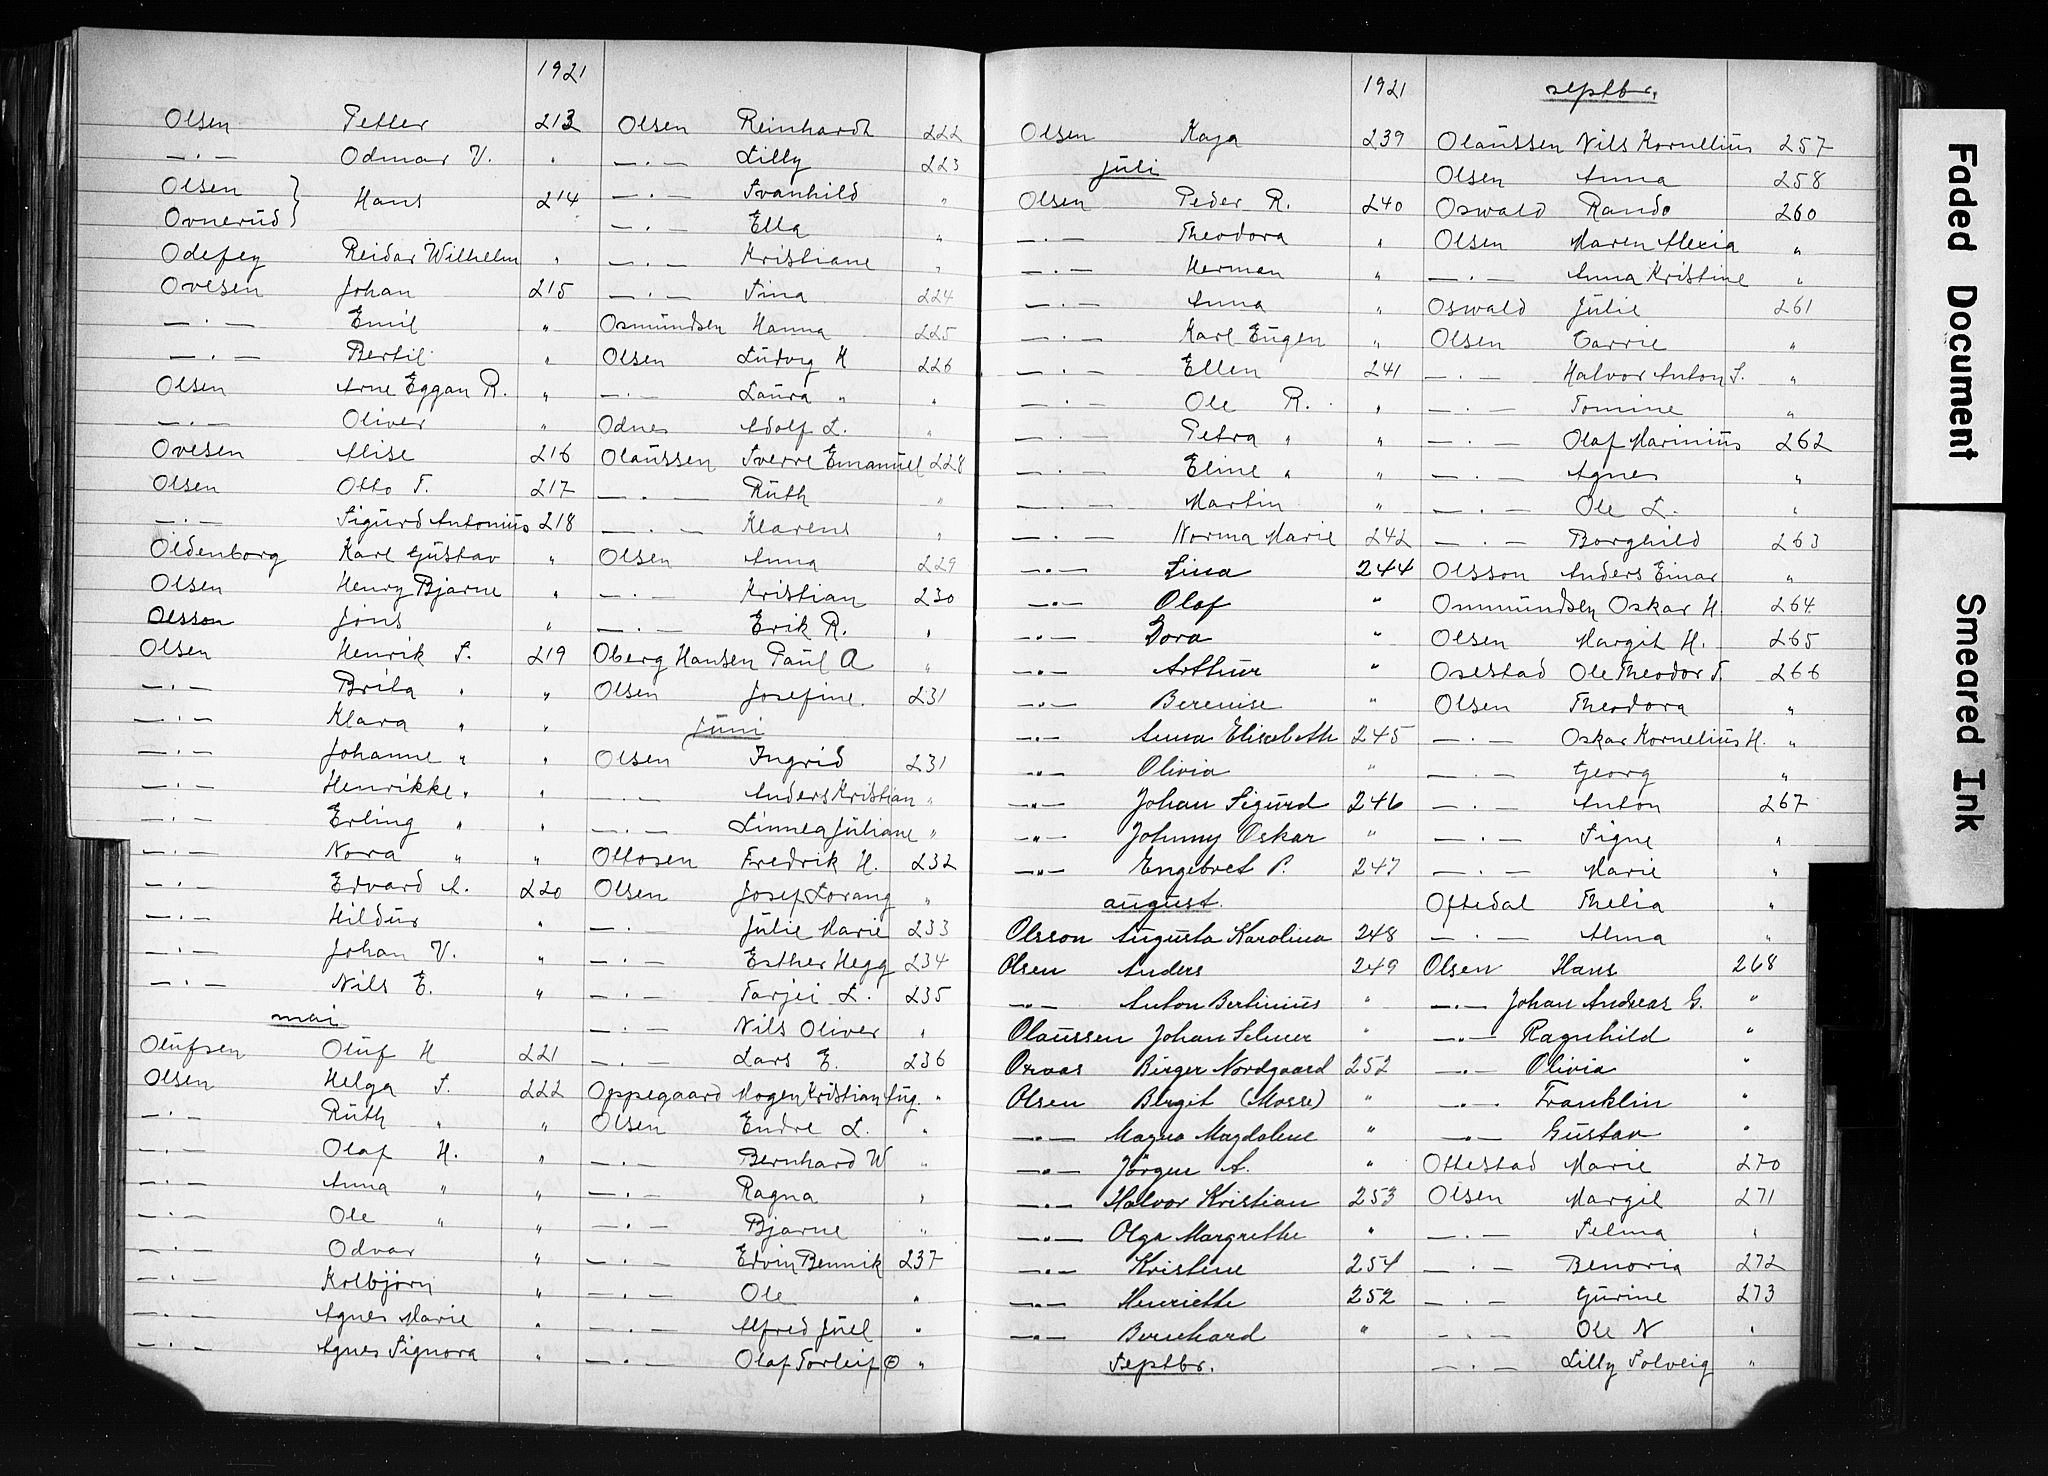 1921
Olsen Petter 213
— . — Odmar V. "
Olsen } Hans 214
Ovnerud }
Odefey Reidar Wilhelm "
Ovesen Johan 215
— . — Emil "
— . — Bertil "
Olsen Arne Eggan R. "
— . — Oliver "
Ovesen Alise 216
Olsen Otto T. 217
— . — Sigurd Antonius 218
Oldenborg Karl Gustav "
Olsen Henry Bjarne "
Olsson Jöns "
Olsen Henrik S. 219
— . — Brita " "
— . — Klara " "
— . — Johanne " "
— . — Henrikke " "
— . — Erling " "
— . — Nora " "
— . — Edvard A. 220
— . — Hildur "
— . — Johan V. "
— . — Nils E. "
mai
Olufsen Oluf H 221
Olsen Helga S. 222
— . — Ruth " "
— . — Olaf H. "
— . — Anna " "
— . — Ole " "
— . — Odvar "
— . — Kolbjörn "
— . — Agnes Marie "
— . — Agnes Signora "
Olsen Reinhardt 222
— . — Lilly 223
— . — Svanhild "
— . — Ella "
— . — Kristiane "
— . — Sina 224
Osmundsen Hanna 225
Olsen Ludvig K 226
— . — Laura " "
Odnes Adolf L. "
Olaussen Sverre Emanuel 228
— . — Ruth "
— . — Klarens "
Olsen Anna 229
— . — Kristian 230
— . — Erik R. "
Oberg Hansen Paul A "
Olsen Josefine 231
Juni
Olsen Ingrid 231
— . — Anders Kristian "
— . — Linnea Juliane "
Ottosen Fredrik H. 232
Olsen Josef Lorang "
— . — Julie Marie 233
— . — Esther Hegg 234
— . — Tarjei L. 235
— . — Nils Oliver "
— . — Lars E. 236
Oppegaard Mogen Kristian Aug. "
Olsen Endre L. "
— . — Bernhard W "
— . — Ragna "
— . — Bjarne "
— . — Edvin Bennik 237
— . — Ole "
— . — Alfred Juel "
— . — Olaf Torleif "
1921
Olsen Kaja 239
Juli
Olsen Peder R. 240
— . — Theodora "
— . — Herman "
— . — Anna "
— . — Karl Eugen "
— . — Ellen 241
— . — Ole R. "
— . — Petra " "
— . — Eline " "
— . — Martin "
— . — Norma Marie 242
— " — Lina 244
— " — Olaf "
— " — Dora "
— " — Arthur "
— " — Berenise "
— " — Anna Elisabeth 245
— " — Olivia "
— " — Johan Sigurd 246
— " — Johnny Oskar "
— " — Engebret P. 247
august.
Olsson Augusta Karolina 248
Olsen Anders 249
— " — Anton Bertinius "
Olaussen Johan Selmer "
Orvas Birger Nordgaard 252
Olsen Birgit (Mosse) "
— " — Magna Magdalene "
— " — Jörgen A. "
— " — Halvor Kristian 253
— " — Olga Margrethe "
— " — Kristene 254
— " — Henriette 252
— " — Bernhard "
Septbr.
septbr.
Olaussen Nils Kornelius 257
Olsen Anna 258
Oswald Rando 260
Olsen Maren Alexia "
— . — Anna Kristine "
Oswald Julie 261
Olsen Carrie "
— . — Halvor Anton S. "
— . — Tomine "
— . — Olaf Marinius 262
— . — Agnes "
— . — Ole L. "
— . — Borghild 263
Olsson Anders Einar "
Ommundsen Oskar H. 264
Olsen Margit H. 265
Osestad Ole Theodor T. 266
Olsen Theodora "
— . — Oskar Kornelius H. "
— . — Georg "
— . — Anton 267
— . — Signe "
— . — Marie "
Oftedal Thelia "
— . — Alma "
Olsen Hans 268
— " — Johan Andreas G. "
— " — Ragnhild "
— " — Olivia "
— " — Franklin "
— " — Gustav "
Ottestad Marie 270
Olsen Margit 271
— . — Selma "
— . — Benoria 272
— . — Gurine 273
— . — Ole N "
— . — Lilly Solveig "
Faded Document
Smeared Ink